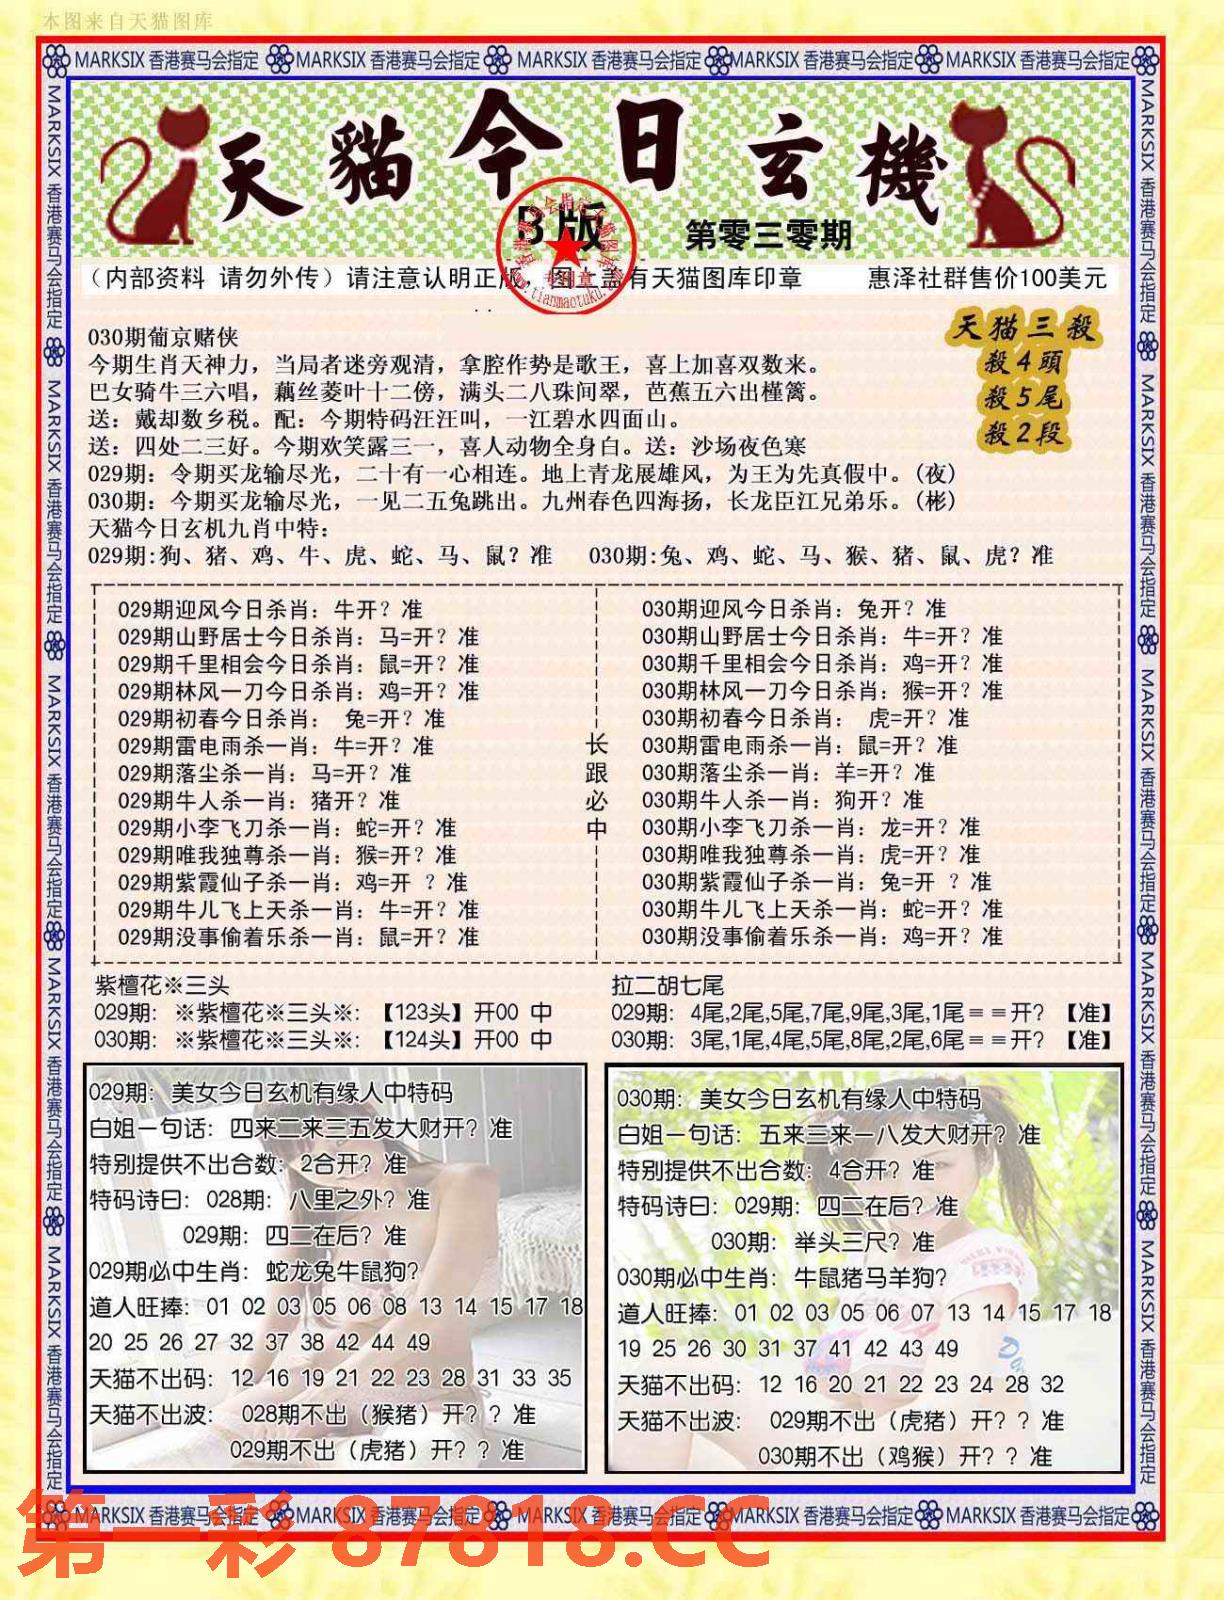 本图来自天猫图库
MARKSIX 香港赛马会指定 MARKSIX 香港赛马会指定 MARKSIX 香港赛马会指定 MARKSIX 香港赛马会指定 MARKSIX 香港赛马会指定
天貓今日玄機
B版
第零三零期
（内部资料 请勿外传）请注意认明正版，图上盖有天猫图库印章 惠泽社群售价100美元
天猫三殺
殺4頭
殺5尾
殺2段
030期葡京赌侠
今期生肖天神力，当局者迷旁观清，拿腔作势是歌王，喜上加喜双数来。
巴女骑牛三六唱，藕丝菱叶十二傍，满头二八珠间翠，芭蕉五六出槿篱。
送：戴却数乡税。配：今期特码汪汪叫，一江碧水四面山。
送：四处二三好。今期欢笑露三一，喜人动物全身白。送：沙场夜色寒
029期：令期买龙输尽光，二十有一心相连。地上青龙展雄风，为王为先真假中。(夜)
030期：今期买龙输尽光，一见二五兔跳出。九州春色四海扬，长龙臣江兄弟乐。(彬)
天猫今日玄机九肖中特：
029期:狗、猪、鸡、牛、虎、蛇、马、鼠？准 030期:兔、鸡、蛇、马、猴、猪、鼠、虎？准
029期迎风今日杀肖：牛开？准
029期山野居士今日杀肖：马=开？准
029期千里相会今日杀肖：鼠=开？准
029期林风一刀今日杀肖：鸡=开？准
029期初春今日杀肖： 兔=开？准
029期雷电雨杀一肖：牛=开？准
029期落尘杀一肖：马=开？准
029期牛人杀一肖：猪开？准
029期小李飞刀杀一肖：蛇=开？准
029期唯我独尊杀一肖：猴=开？准
029期紫霞仙子杀一肖：鸡=开 ？准
029期牛儿飞上天杀一肖：牛=开？准
029期没事偷着乐杀一肖：鼠=开？准
长跟必中
030期迎风今日杀肖：兔开？准
030期山野居士今日杀肖：牛=开？准
030期千里相会今日杀肖：鸡=开？准
030期林风一刀今日杀肖：猴=开？准
030期初春今日杀肖： 虎=开？准
030期雷电雨杀一肖：鼠=开？准
030期落尘杀一肖：羊=开？准
030期牛人杀一肖：狗开？准
030期小李飞刀杀一肖：龙=开？准
030期唯我独尊杀一肖：虎=开？准
030期紫霞仙子杀一肖：兔=开 ？准
030期牛儿飞上天杀一肖：蛇=开？准
030期没事偷着乐杀一肖：鸡=开？准
紫檀花※三头
029期：※紫檀花※三头※：【123头】开00 中
030期：※紫檀花※三头※：【124头】开00 中
拉二胡七尾
029期：4尾,2尾,5尾,7尾,9尾,3尾,1尾＝＝开？【准】
030期：3尾,1尾,4尾,5尾,8尾,2尾,6尾＝＝开？【准】
029期：美女今日玄机有缘人中特码
白姐一句话：四来二来三五发大财开？准
特别提供不出合数：2合开？准
特码诗曰：028期：八里之外？准
029期：四二在后？准
029期必中生肖：蛇龙兔牛鼠狗？
道人旺捧：01 02 03 05 06 08 13 14 15 17 18
20 25 26 27 32 37 38 42 44 49
天猫不出码：12 16 19 21 22 23 28 31 33 35
天猫不出波： 028期不出（猴猪）开？？准
029期不出（虎猪）开？？准
030期：美女今日玄机有缘人中特码
白姐一句话：五来三来一八发大财开？准
特别提供不出合数：4合开？准
特码诗曰：029期：四二在后？准
030期：举头三尺？准
030期必中生肖：牛鼠猪马羊狗？
道人旺捧：01 02 03 05 06 07 13 14 15 17 18
19 25 26 30 31 37 41 42 43 49
天猫不出码：12 16 20 21 22 23 24 28 32
天猫不出波： 029期不出（虎猪）开？？准
030期不出（鸡猴）开？？准
MARKSIX 香港赛马会指定 MARKSIX 香港赛马会指定 MARKSIX 香港赛马会指定 MARKSIX 香港赛马会指定 MARKSIX 香港赛马会指定
MARKSIX 香港赛马会指定 MARKSIX 香港赛马会指定 MARKSIX 香港赛马会指定 MARKSIX 香港赛马会指定 MARKSIX 香港赛马会指定
MARKSIX 香港赛马会指定 MARKSIX 香港赛马会指定 MARKSIX 香港赛马会指定 MARKSIX 香港赛马会指定 MARKSIX 香港赛马会指定
第一彩 87818.CC